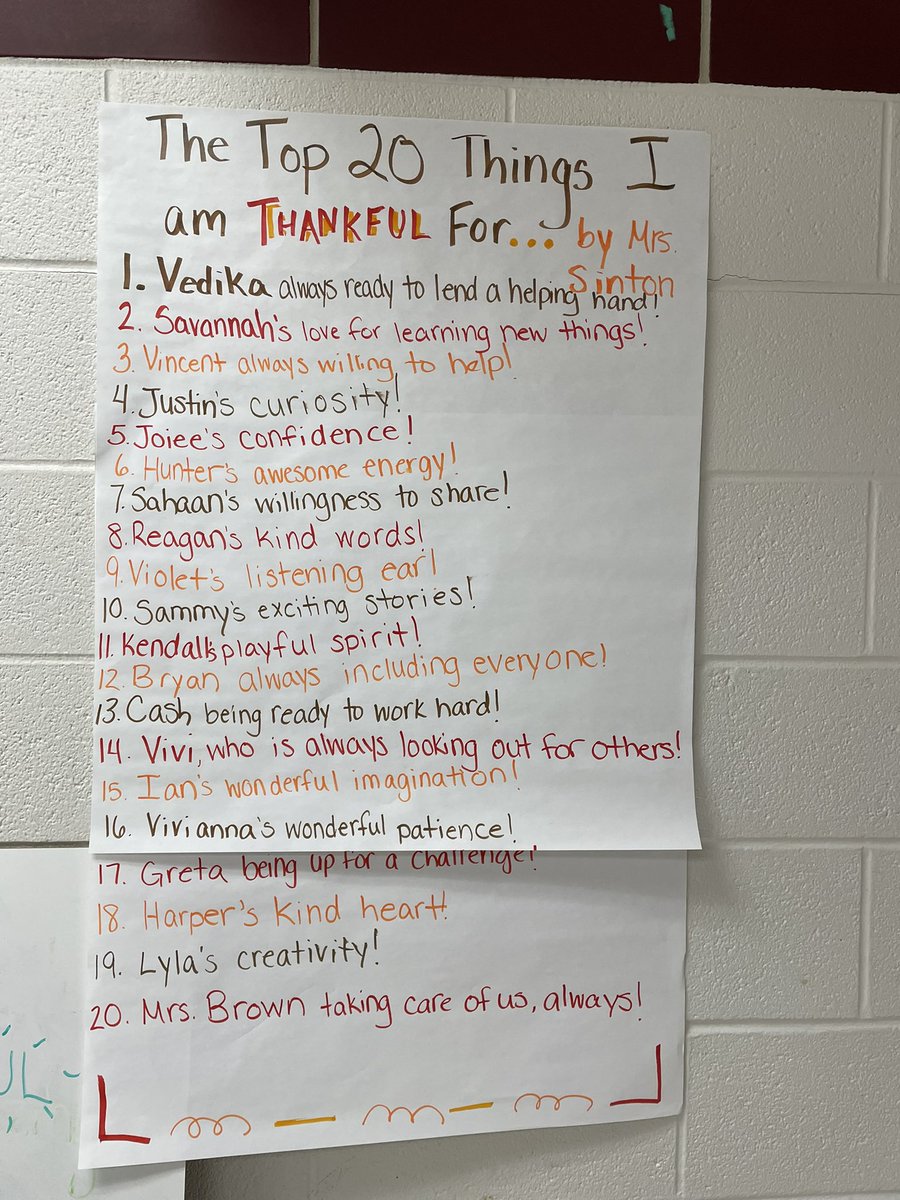 The Top 20 Things I
am THANKFUL For... by Mrs.
Sinton
1. Vedika always ready to lend a helping hand!
2. Savannah's love for learning new things!
3. Vincent always willing to help!
4. Justin's curiosity!
5. Joiee's confidence!
6. Hunter's awesome energy!
7. Sahaan's willingness to share!
8. Reagan's kind words!
9. Violet's listening ear!
10. Sammy's exciting stories!
11. Kendall's playful spirit!
12. Bryan always including everyone!
13. Cash being ready to work hard!
14. Vivi, who is always looking out for others!
15. Ian's wonderful imagination!
16. Vivianna's wonderful patience!
17. Greta being up for a challenge!
18. Harper's kind heart!
19. Lyla's creativity!
20. Mrs. Brown taking care of us, always!